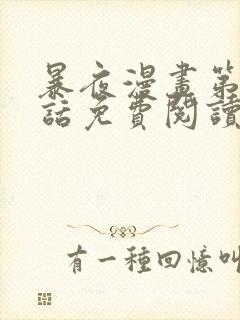 暴夜漫畫第
話免費閱讀
有一種回憶叫